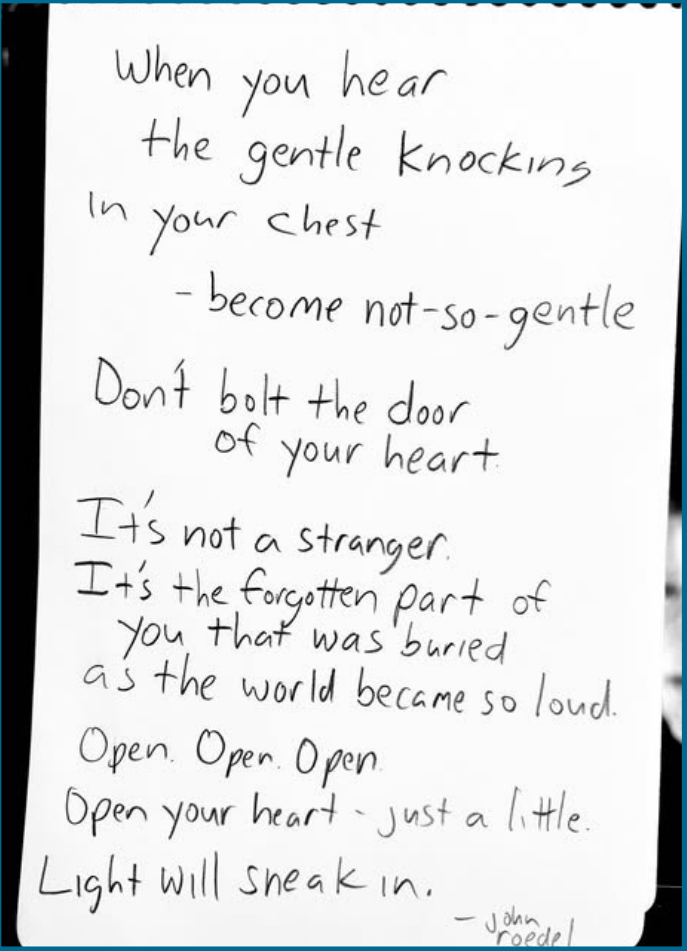 When you hear
the gentle knocking
in your chest
- become not-so-gentle
Don't bolt the door
of your heart.
It's not a stranger.
It's the forgotten part of
you that was buried
as the world became so loud.
Open. Open. Open.
Open your heart - just a little.
Light will sneak in.
- john
roedel